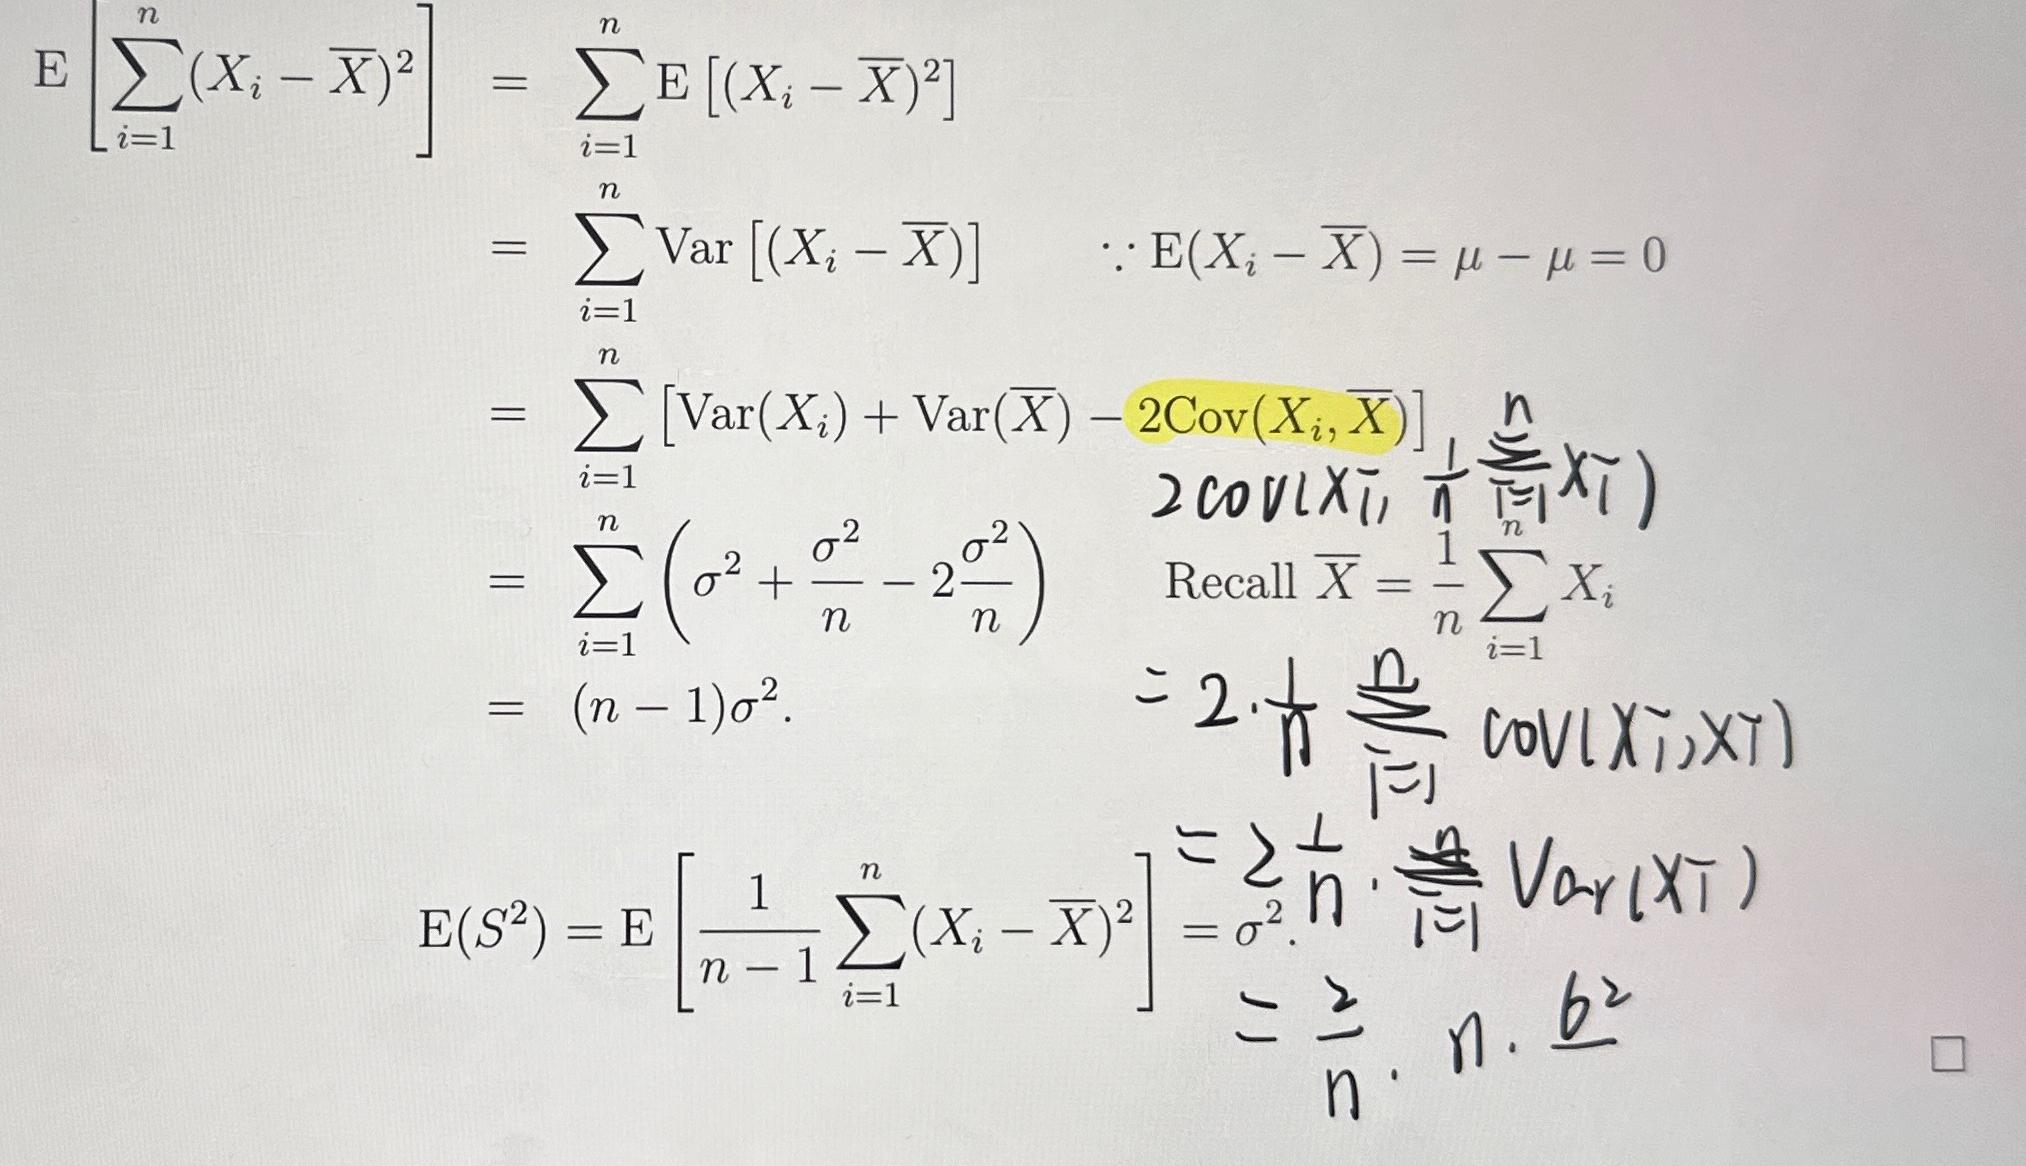 E[∑_{i=1}^{n}(X_i − X̅)²] = ∑_{i=1}^{n} E[(X_i − X̅)²]
= ∑_{i=1}^{n} Var[(X_i − X̅)] ∵ E(X_i − X̅) = μ − μ = 0
= ∑_{i=1}^{n} [Var(X_i) + Var(X̅) − 2Cov(X_i, X̅)]
2cov(Xi, 1/n ∑_{i=1}^{n} Xi)
= ∑_{i=1}^{n} (σ² + σ²/n − 2σ²/n) Recall X̅ = 1/n ∑_{i=1}^{n} X_i
= (n − 1)σ².
= 2·1/n ∑_{i=1}^{n} cov(Xi, Xi)
= 2 1/n · ∑_{i=1}^{n} Var(Xi)
E(S²) = E[1/(n − 1) ∑_{i=1}^{n}(X_i − X̅)²] = σ².
= 2/n · n · 6²
□